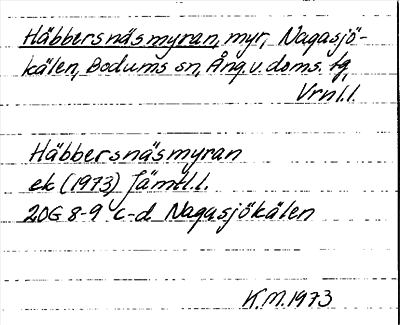 Häbbersnäsmyran, myr, Nagasjö-
kälen, Bodums sn, Ång. v. doms. tg,
Vrnl. l.
Häbbersnäsmyran
ek (1973) Jämtl. l.
20G 8-9 c-d Nagasjökälen
K.M. 1973